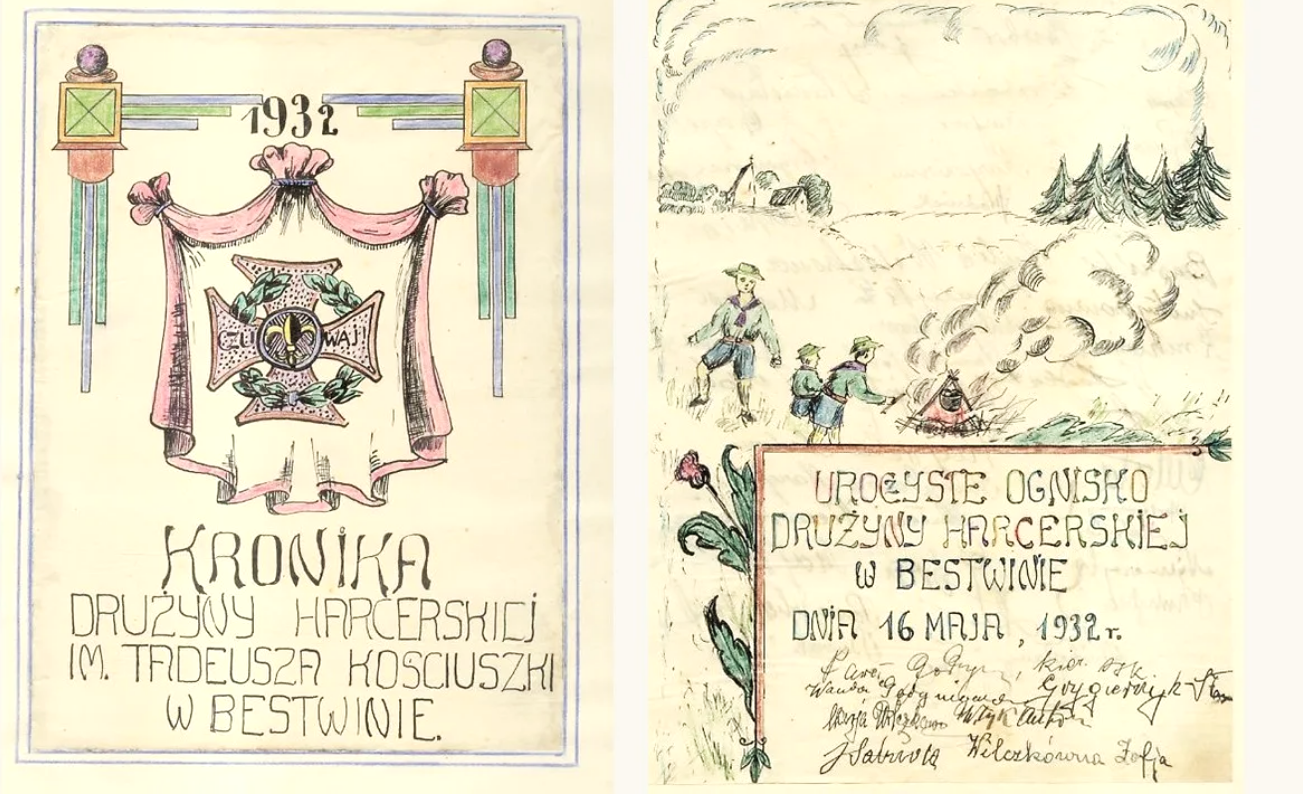 1932
CZU WAJ
KRONIKA
DRUŻYNY HARCERSKIEJ
IM. TADEUSZA KOSCIUSZKI
W BESTWINIE.
UROCZYSTE OGNISKO
DRUŻYNY HARCERSKIEJ
W BESTWINIE
DNIA 16 MAJA, 1932 r.
kier. szk.
Wanda Grygierzyk
Wilczkówna Zofja